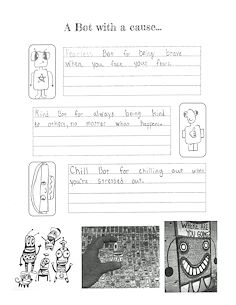 A Bot with a cause...
Fearless Bot for being brave
when you face your fears.
Kind Bot for always being kind
to others, no matter what happens.
Chill Bot for chilling out when
you're stressed out.
WHERE ARE
YOU GOING?